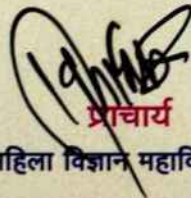 प्राचार्य
हिला विज्ञान महावि